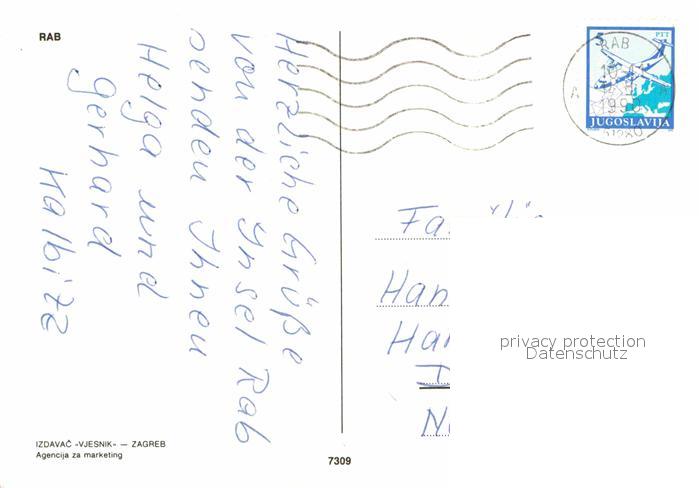 RAB
Herzliche Grüße
von der Insel Rab
senden Ihnen
Helga und
Gerhard
Kalbitz
5
PTT
JUGOSLAVIJA
RAB
1990
A
A
Han
Ha
privacy protection
Datenschutz
IZDAVAČ «VJESNIK» — ZAGREB
Agencija za marketing
7309